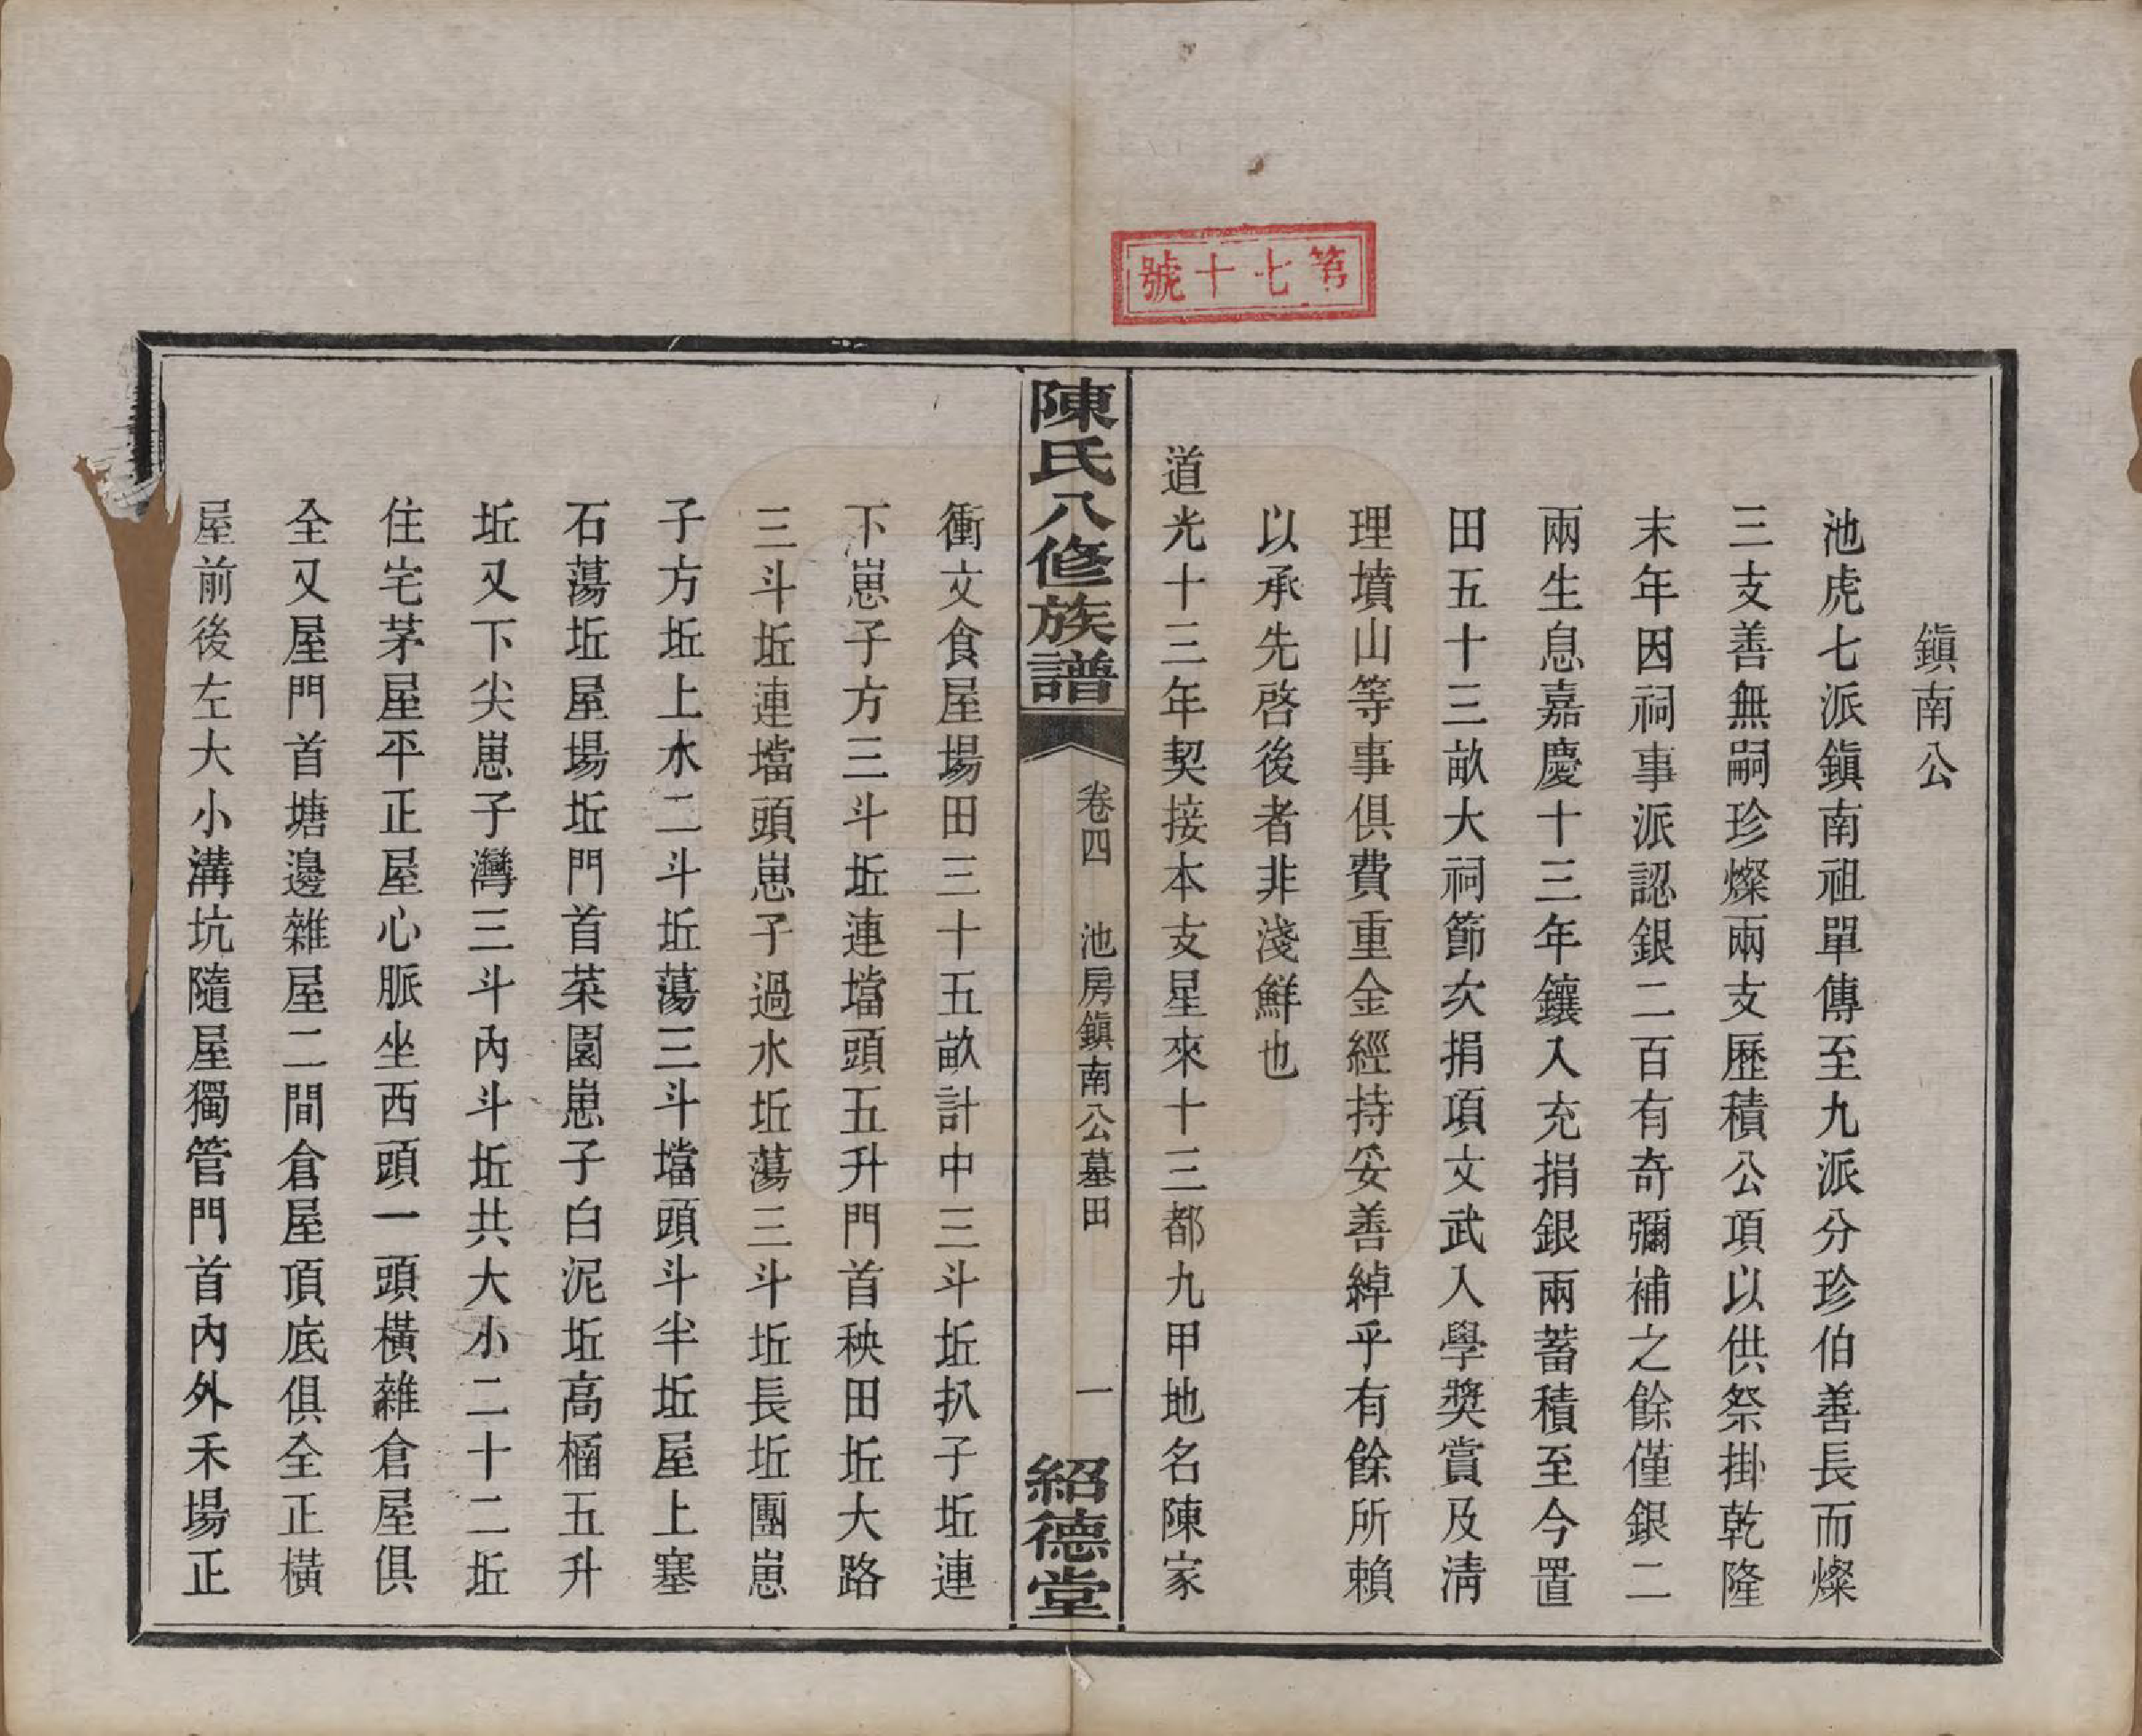 第七十號
鎮南公
池虎七派鎮南祖單傳至九派分珍伯善長而燦
三支善無嗣珍燦兩支歷積公項以供祭掛乾隆
末年因祠事派認銀二百有奇彌補之餘僅銀二
兩生息嘉慶十三年鑲入充捐銀兩蓄積至今置
田五十三畝大祠節次捐項文武入學獎賞及清
理墳山等事俱費重金經持妥善綽乎有餘所賴
以承先啓後者非淺鮮也
道光十三年契接本支星來十三都九甲地名陳家
陳氏八修族譜
卷四
池房鎮南公墓田
一
紹德堂
衝文食屋場田三十五畝計中三斗坵扒子坵連
下崽子方三斗坵連壋頭五升門首秧田坵大路
三斗坵連壋頭崽子過水坵蕩三斗坵長坵團崽
子方坵上水二斗坵蕩三斗壋頭斗半坵屋上塞
石蕩坵屋場坵門首菜園崽子白泥坵高桶五升
坵又下尖崽子灣三斗內斗坵共大小二十二坵
住宅茅屋平正屋心脈坐西頭一頭橫雜倉屋俱
全又屋門首塘邊雜屋二間倉屋頂底俱全正橫
屋前後左大小溝坑隨屋獨管門首內外禾場正